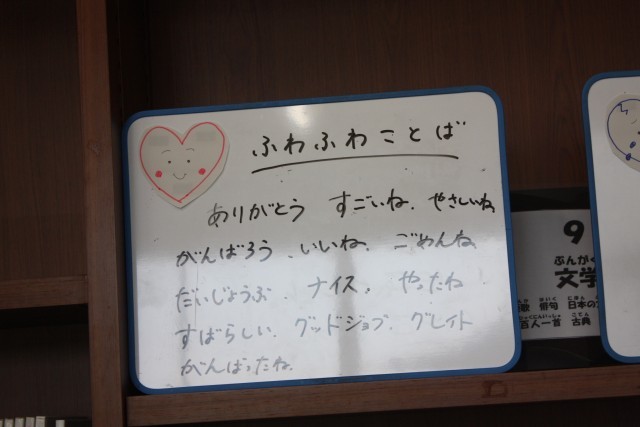 ふわふわことば
ありがとう すごいね、やさしいね
がんばろう、いいね、ごめんね
だいじょうぶ、ナイス、やったね
すばらしい、グッドジョブ、グレイト
がんばったね、
9
ぶんがく
文学
はいく にほん
俳句 日本の
百人一首 こてん
古典